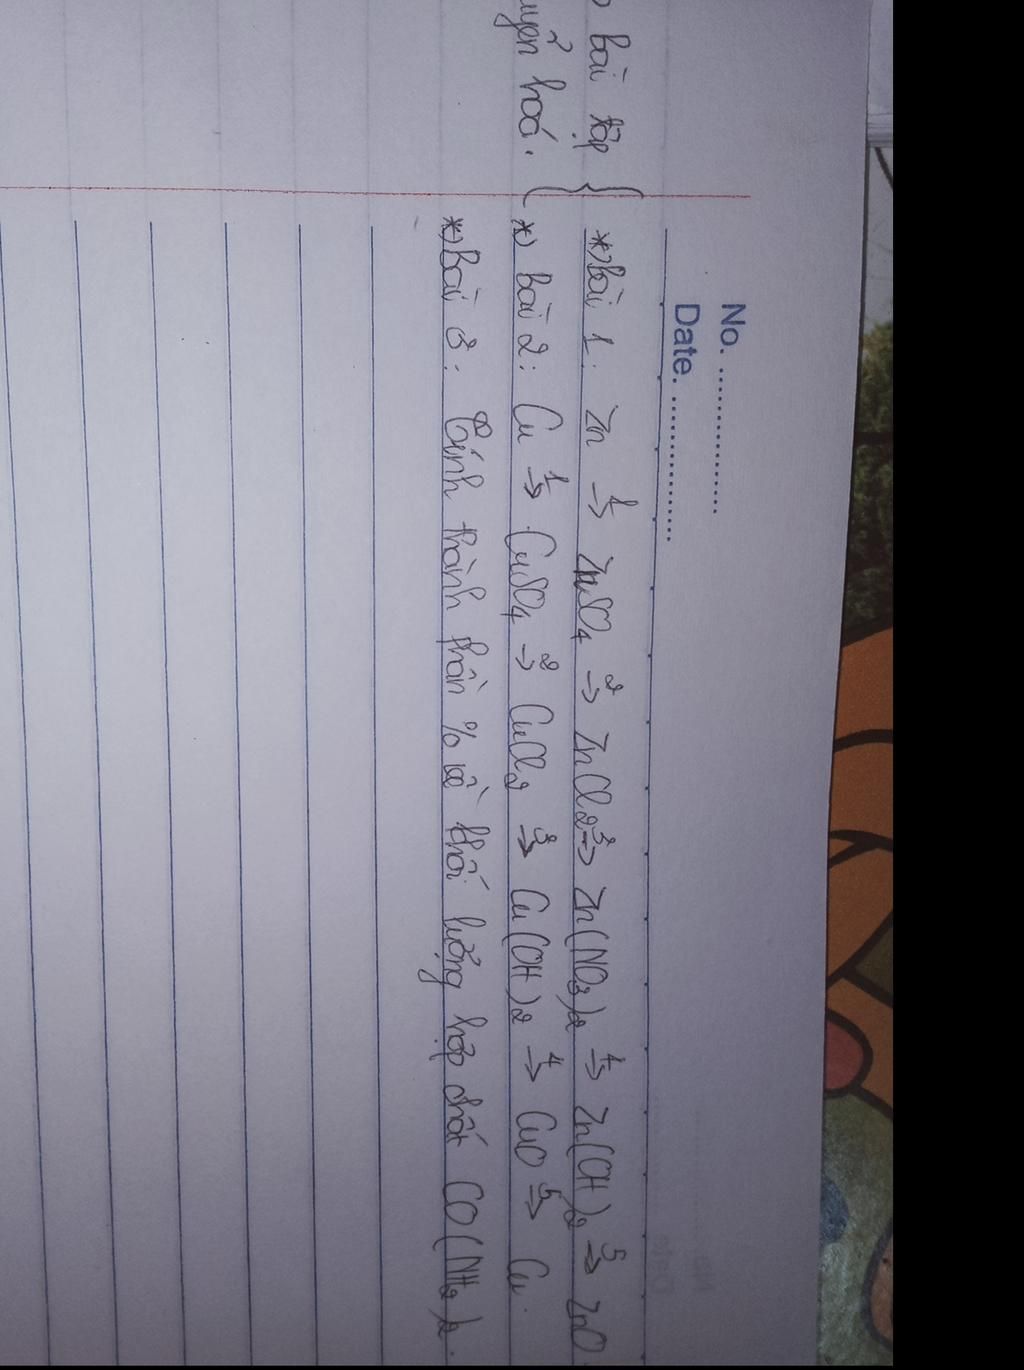 No. ................
Date. ................
bài tập
*) Bài 1: Zn →¹ ZnSO₄ →² ZnCl₂ →³ Zn(NO₃)₂ →⁴ Zn(OH)₂ →⁵ ZnO
hoá.
*) Bài 2: Cu →¹ CuSO₄ →² CuCl₂ →³ Cu(OH)₂ →⁴ CuO →⁵ Cu.
*) Bài 3: Tính thành phần % về khối lượng hợp chất CO(NH₂)₂.